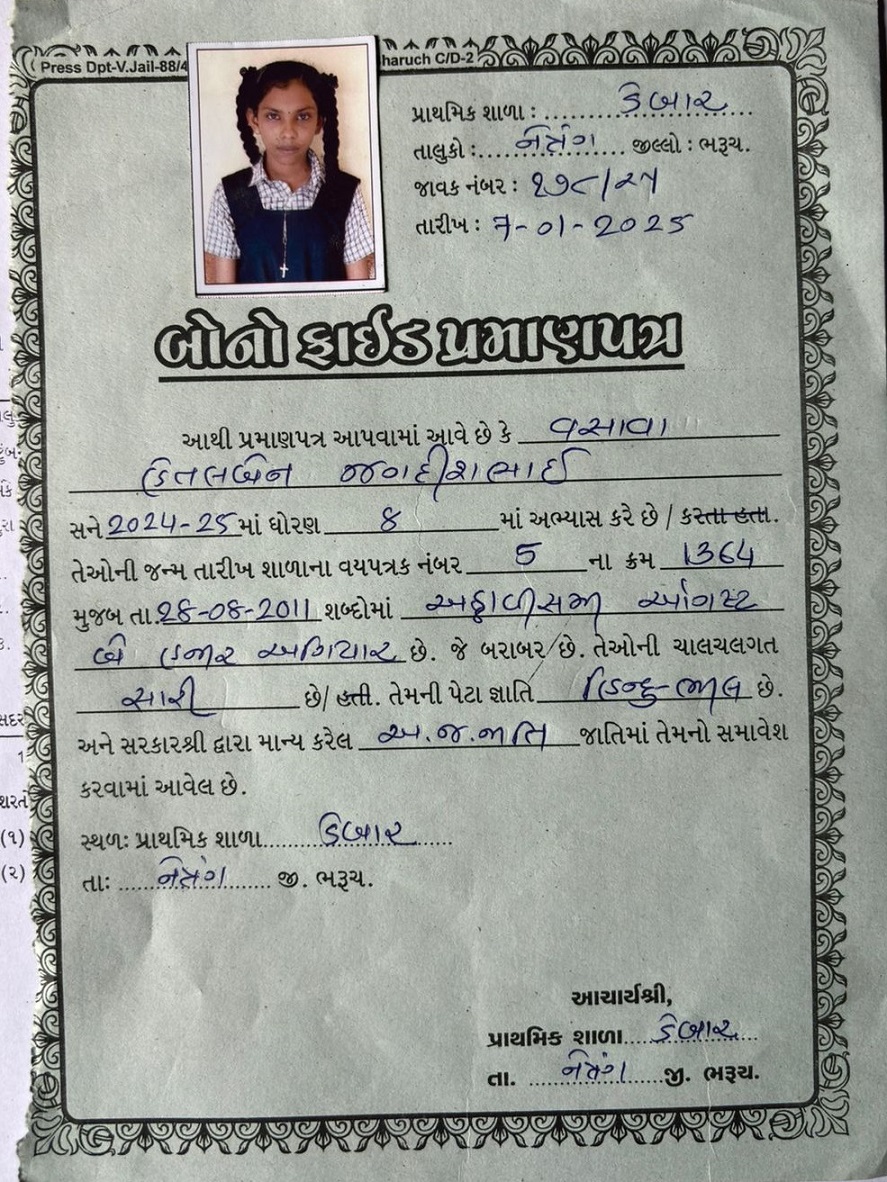 Press Dpt-V.Jail-88/4 haruch C/D-2
પ્રાથમિક શાળા : કેબાર
તાલુકો : નેત્રંગ જીલ્લો : ભરૂચ.
જાવક નંબર : ૧૭૮/૨૫
તારીખ : 7-01-2025
બોનો ફાઈડ પ્રમાણપત્ર
આથી પ્રમાણપત્ર આપવામાં આવે છે કે વસાવા
જગદીશભાઈ
સને 2024-25 માં ધોરણ 8 માં અભ્યાસ કરે છે / કરતા હતા.
તેઓની જન્મ તારીખ શાળાના વયપત્રક નંબર 5 ના ક્રમ 1364
મુજબ તા. 28-08-2011 શબ્દોમાં અઠ્ઠાવીસમી ઓગષ્ટ
બે હજાર અગિયાર છે. જે બરાબર છે. તેઓની ચાલચલગત
સારી છે/ હતી. તેમની પેટા જ્ઞાતિ હિન્દુ-ભીલ છે.
અને સરકારશ્રી દ્વારા માન્ય કરેલ અ.જ.જાતિ જાતિમાં તેમનો સમાવેશ
કરવામાં આવેલ છે.
સ્થળઃ પ્રાથમિક શાળા કેબાર
તાઃ નેત્રંગ જી. ભરૂચ.
આચાર્યશ્રી,
પ્રાથમિક શાળા કેબાર
તા. નેત્રંગ જી. ભરૂચ.